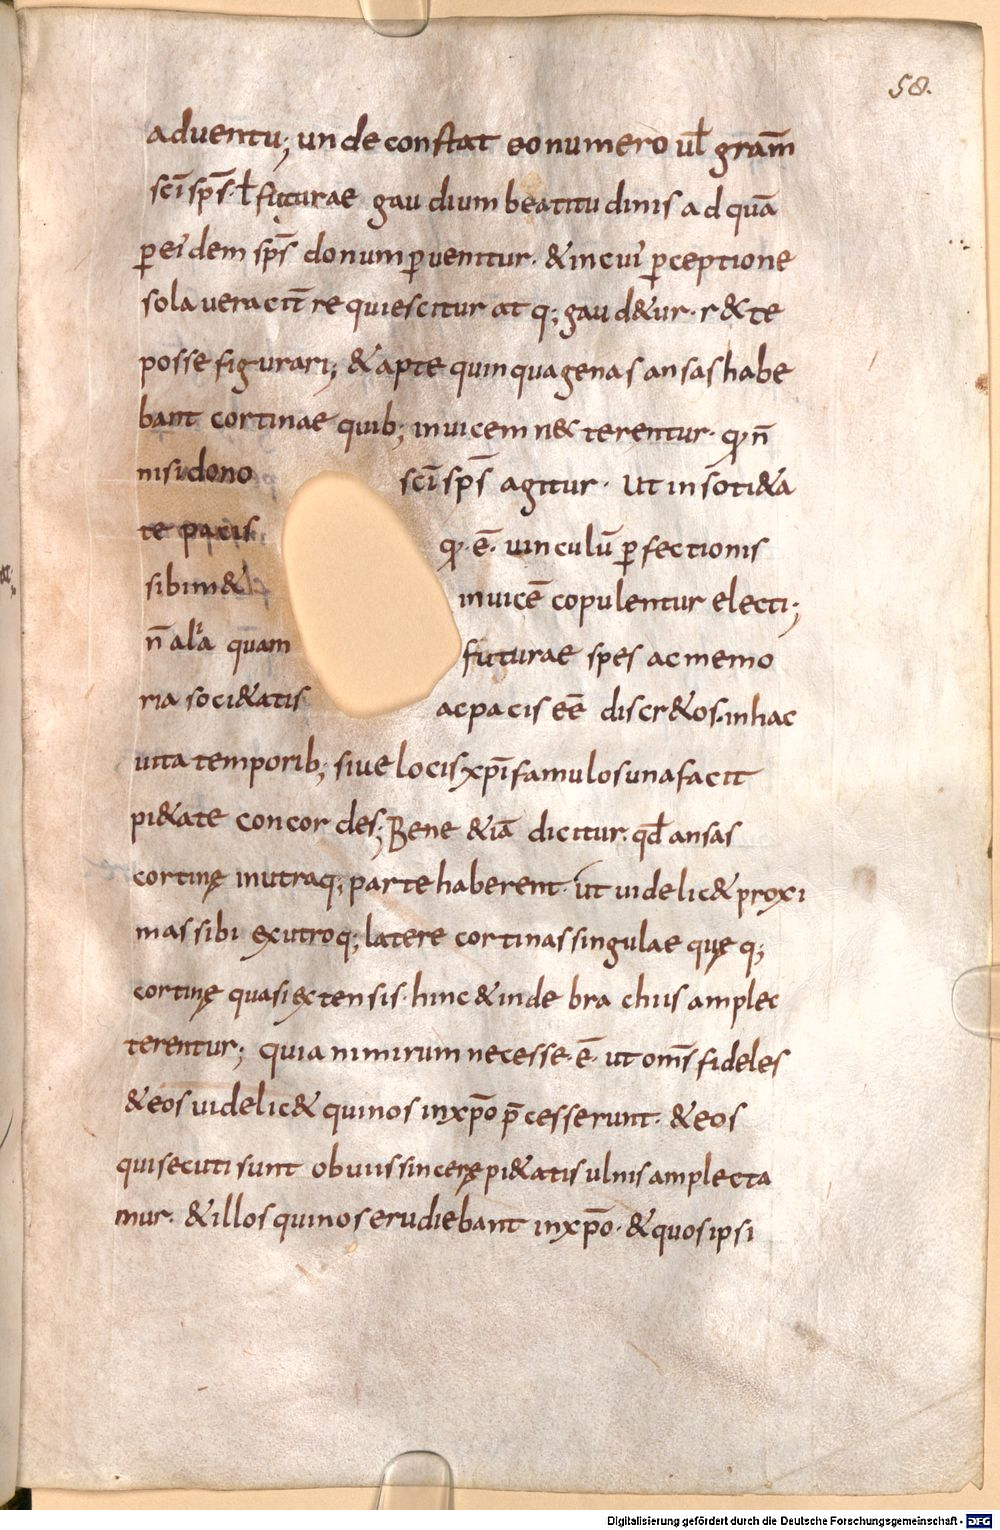 58.
aduentu; unde constat eo numero ul̄ gram̄
sc̄i sp̄s· l̄ futurae gaudium beatitudinis ad quā
ꝑ eidem sp̄s donum ꝑuenitur· & in cui ꝑceptione
sola veracit̄ requiescitur atq; gaud&ur· r&te
posse figurari; & apte quinquagenas ansas habe
bant cortinae quib; inuicem necterentur· qđ n̄
nisi dono sc̄i sp̄s agitur· Ut in soti&a
te pacis qđ·ē· uinculū ꝑfectionis
sibim& inuicē copulentur electi;
n̄ alia quam futurae spes ac memo
ria soci&atis ac pacis eē discr&os· in hac
uita temporib; siue locis xp̄i famulos una facit
pi&ate concordes; Bene &iā dicitur· qđ ansas
cortinę in utraq; parte haberent· ut uidelic& proxi
mas sibi ex utroq; latere cortinas singulae quęq;
cortinę quasi extensis· hinc & inde brachiis amplec
terentur; quia nimirum necesse·ē· ut om̄s fideles
& eos uidelic& qui nos in xp̄o p̄cesserunt· & eos
qui secuti sunt obuiis sincerę pi&atis ulnis amplecta
mur· & illos qui nos erudiebant in xp̄o· & quos ipsi
Digitalisierung gefördert durch die Deutsche Forschungsgemeinschaft - DFG